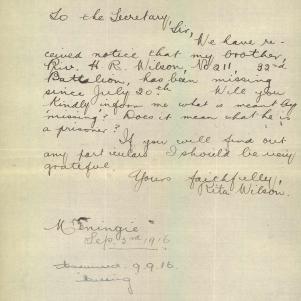 To the Secretary,
Sir,
We have re-
ceived notice that my brother
Priv. H R. Wilson, No 211, 32nd
Battalion, has been missing
since July 20th. Will you
kindly inform me what is meant by
missing'? Does it mean what he is
a prisoner?
If you will find out
any particulars I should be very
grateful.
Yours faithfully,
Rita Wilson.
Meningie
Sep. 3rd 1916
9.9.16.
Missing